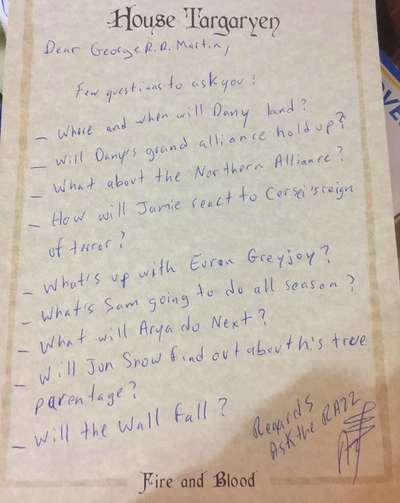 House Targaryen
Dear George R.R. Martin,
Few questions to ask you:
- Where and when will Dany land?
- Will Dany's grand alliance hold up?
- What about the Northern Alliance?
- How will Jamie react to Cersei's reign
of terror?
- What's up with Euron Greyjoy?
- What's Sam going to do all season?
- What will Arya do Next?
- Will Jon Snow find out about his true
parentage?
- Will the Wall fall?
Regards
Ask the RAZZ
Fire and Blood